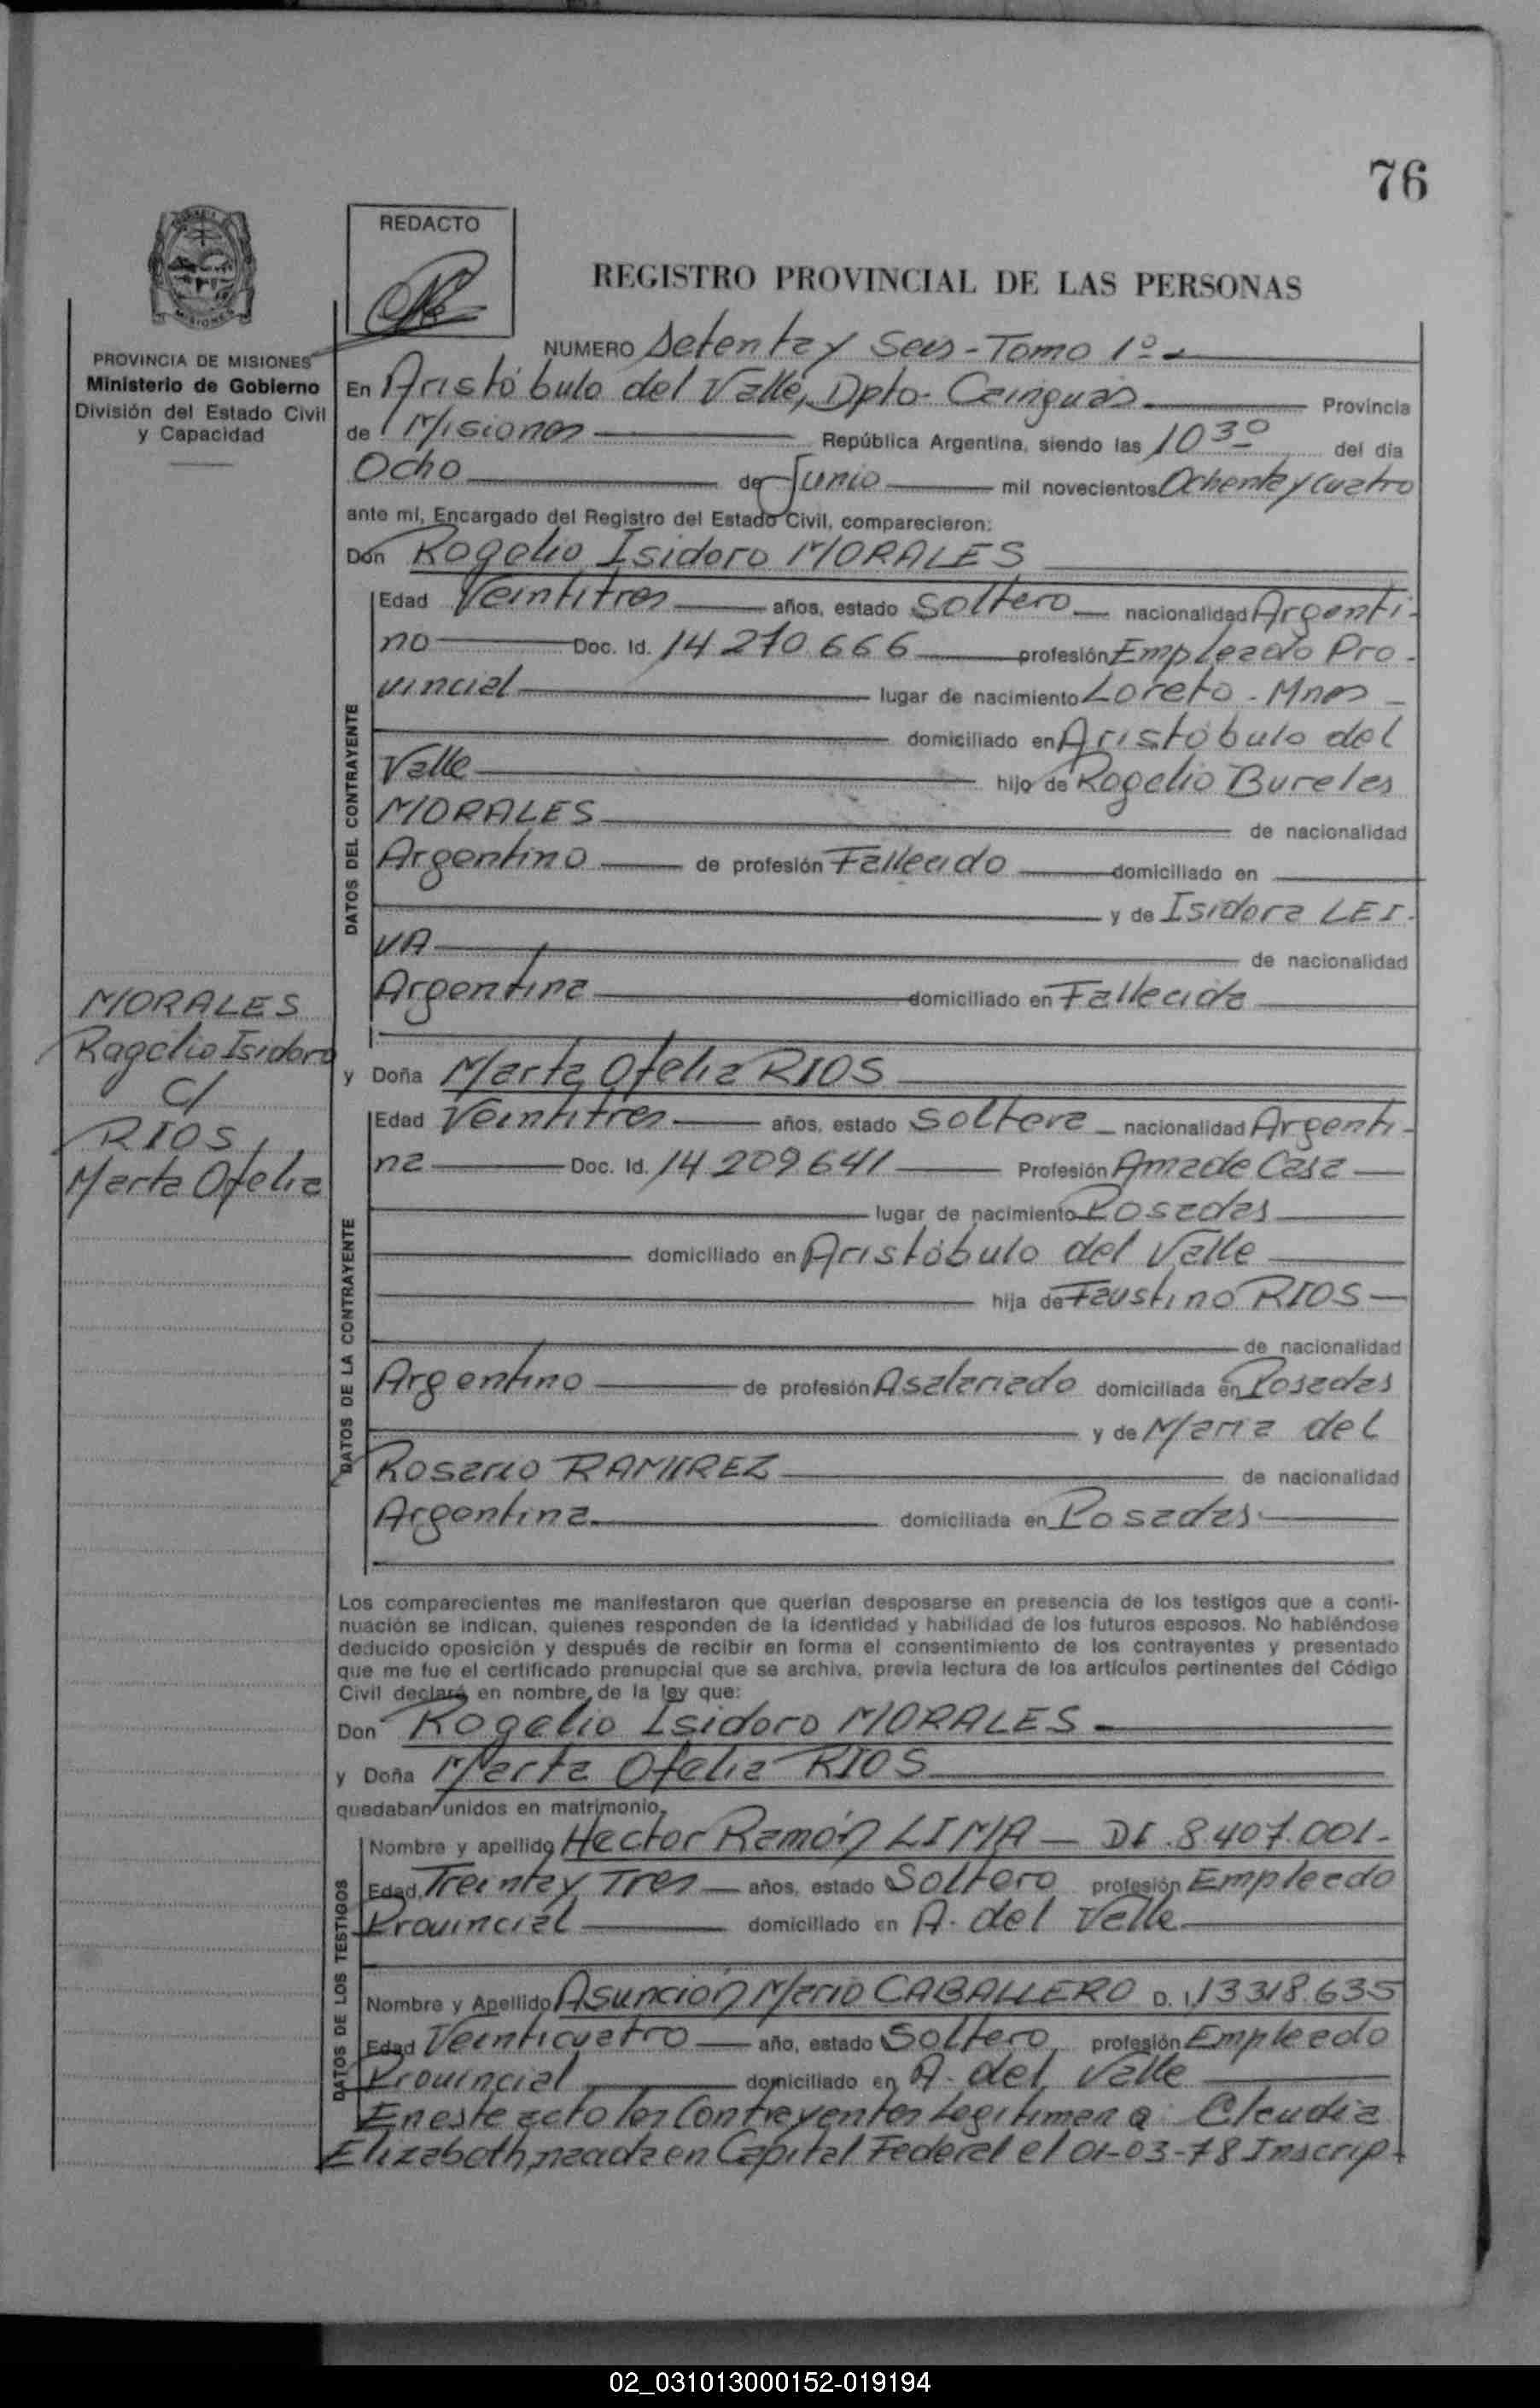 76
REDACTO
REGISTRO PROVINCIAL DE LAS PERSONAS
PROVINCIA DE MISIONES
Ministerio de Gobierno
División del Estado Civil
y Capacidad
NUMERO Setenta y Seis - Tomo 1º -
En Aristóbulo del Valle, Dpto. Cainguás Provincia
de Misiones República Argentina, siendo las 10 30 del día
Ocho de Junio mil novecientos Ochenta y Cuatro
ante mí, Encargado del Registro del Estado Civil, comparecieron:
Don Rogelio Isidoro MORALES
DATOS DEL CONTRAYENTE
Edad Veintitres años, estado Soltero nacionalidad Argenti-
no Doc. Id. 14.210.666 profesión Empleado Pro-
vincial lugar de nacimiento Loreto - Mnes -
domiciliado en Aristóbulo del
Valle hijo de Rogelio Bureles
MORALES de nacionalidad
Argentino de profesión Fallecido domiciliado en
y de Isidora LEI-
VA de nacionalidad
Argentina domiciliado en Fallecida
MORALES
Rogelio Isidoro
c/
RIOS,
Marta Ofelia
y Doña Marta Ofelia RIOS
DATOS DE LA CONTRAYENTE
Edad Veintitres años, estado Soltera - nacionalidad Argenti-
na Doc. Id. 14.209.641 Profesión Ama de Casa
lugar de nacimiento Posadas
domiciliado en Aristóbulo del Valle
hija de Faustino RIOS
de nacionalidad
Argentino de profesión Asalariado domiciliada en Posadas
y de Maria del
Rosario RAMIREZ de nacionalidad
Argentina domiciliada en Posadas
Los comparecientes me manifestaron que querían desposarse en presencia de los testigos que a conti-
nuación se indican, quienes responden de la identidad y habilidad de los futuros esposos. No habiéndose
deducido oposición y después de recibir en forma el consentimiento de los contrayentes y presentado
que me fue el certificado prenupcial que se archiva, previa lectura de los artículos pertinentes del Código
Civil declaré en nombre de la ley que:
Don Rogelio Isidoro MORALES
y Doña Marta Ofelia RIOS
quedaban unidos en matrimonio.
DATOS DE LOS TESTIGOS
Nombre y apellido Hector Ramón LIMA - DI. 8.407.001-
Edad Treinta y Tres años, estado Soltero profesión Empleado
Provincial domiciliado en A. del Valle
Nombre y Apellido Asunción Mario CABALLERO D. I. 13318.635
Edad Veinticuatro año, estado Soltero profesión Empleado
Provincial domiciliado en A. del Valle
En este acto los Contrayentes Legitiman a Claudia
Elizabeth, nacida en Capital Federal el 01-03-78 Inscrip-
02_031013000152-019194